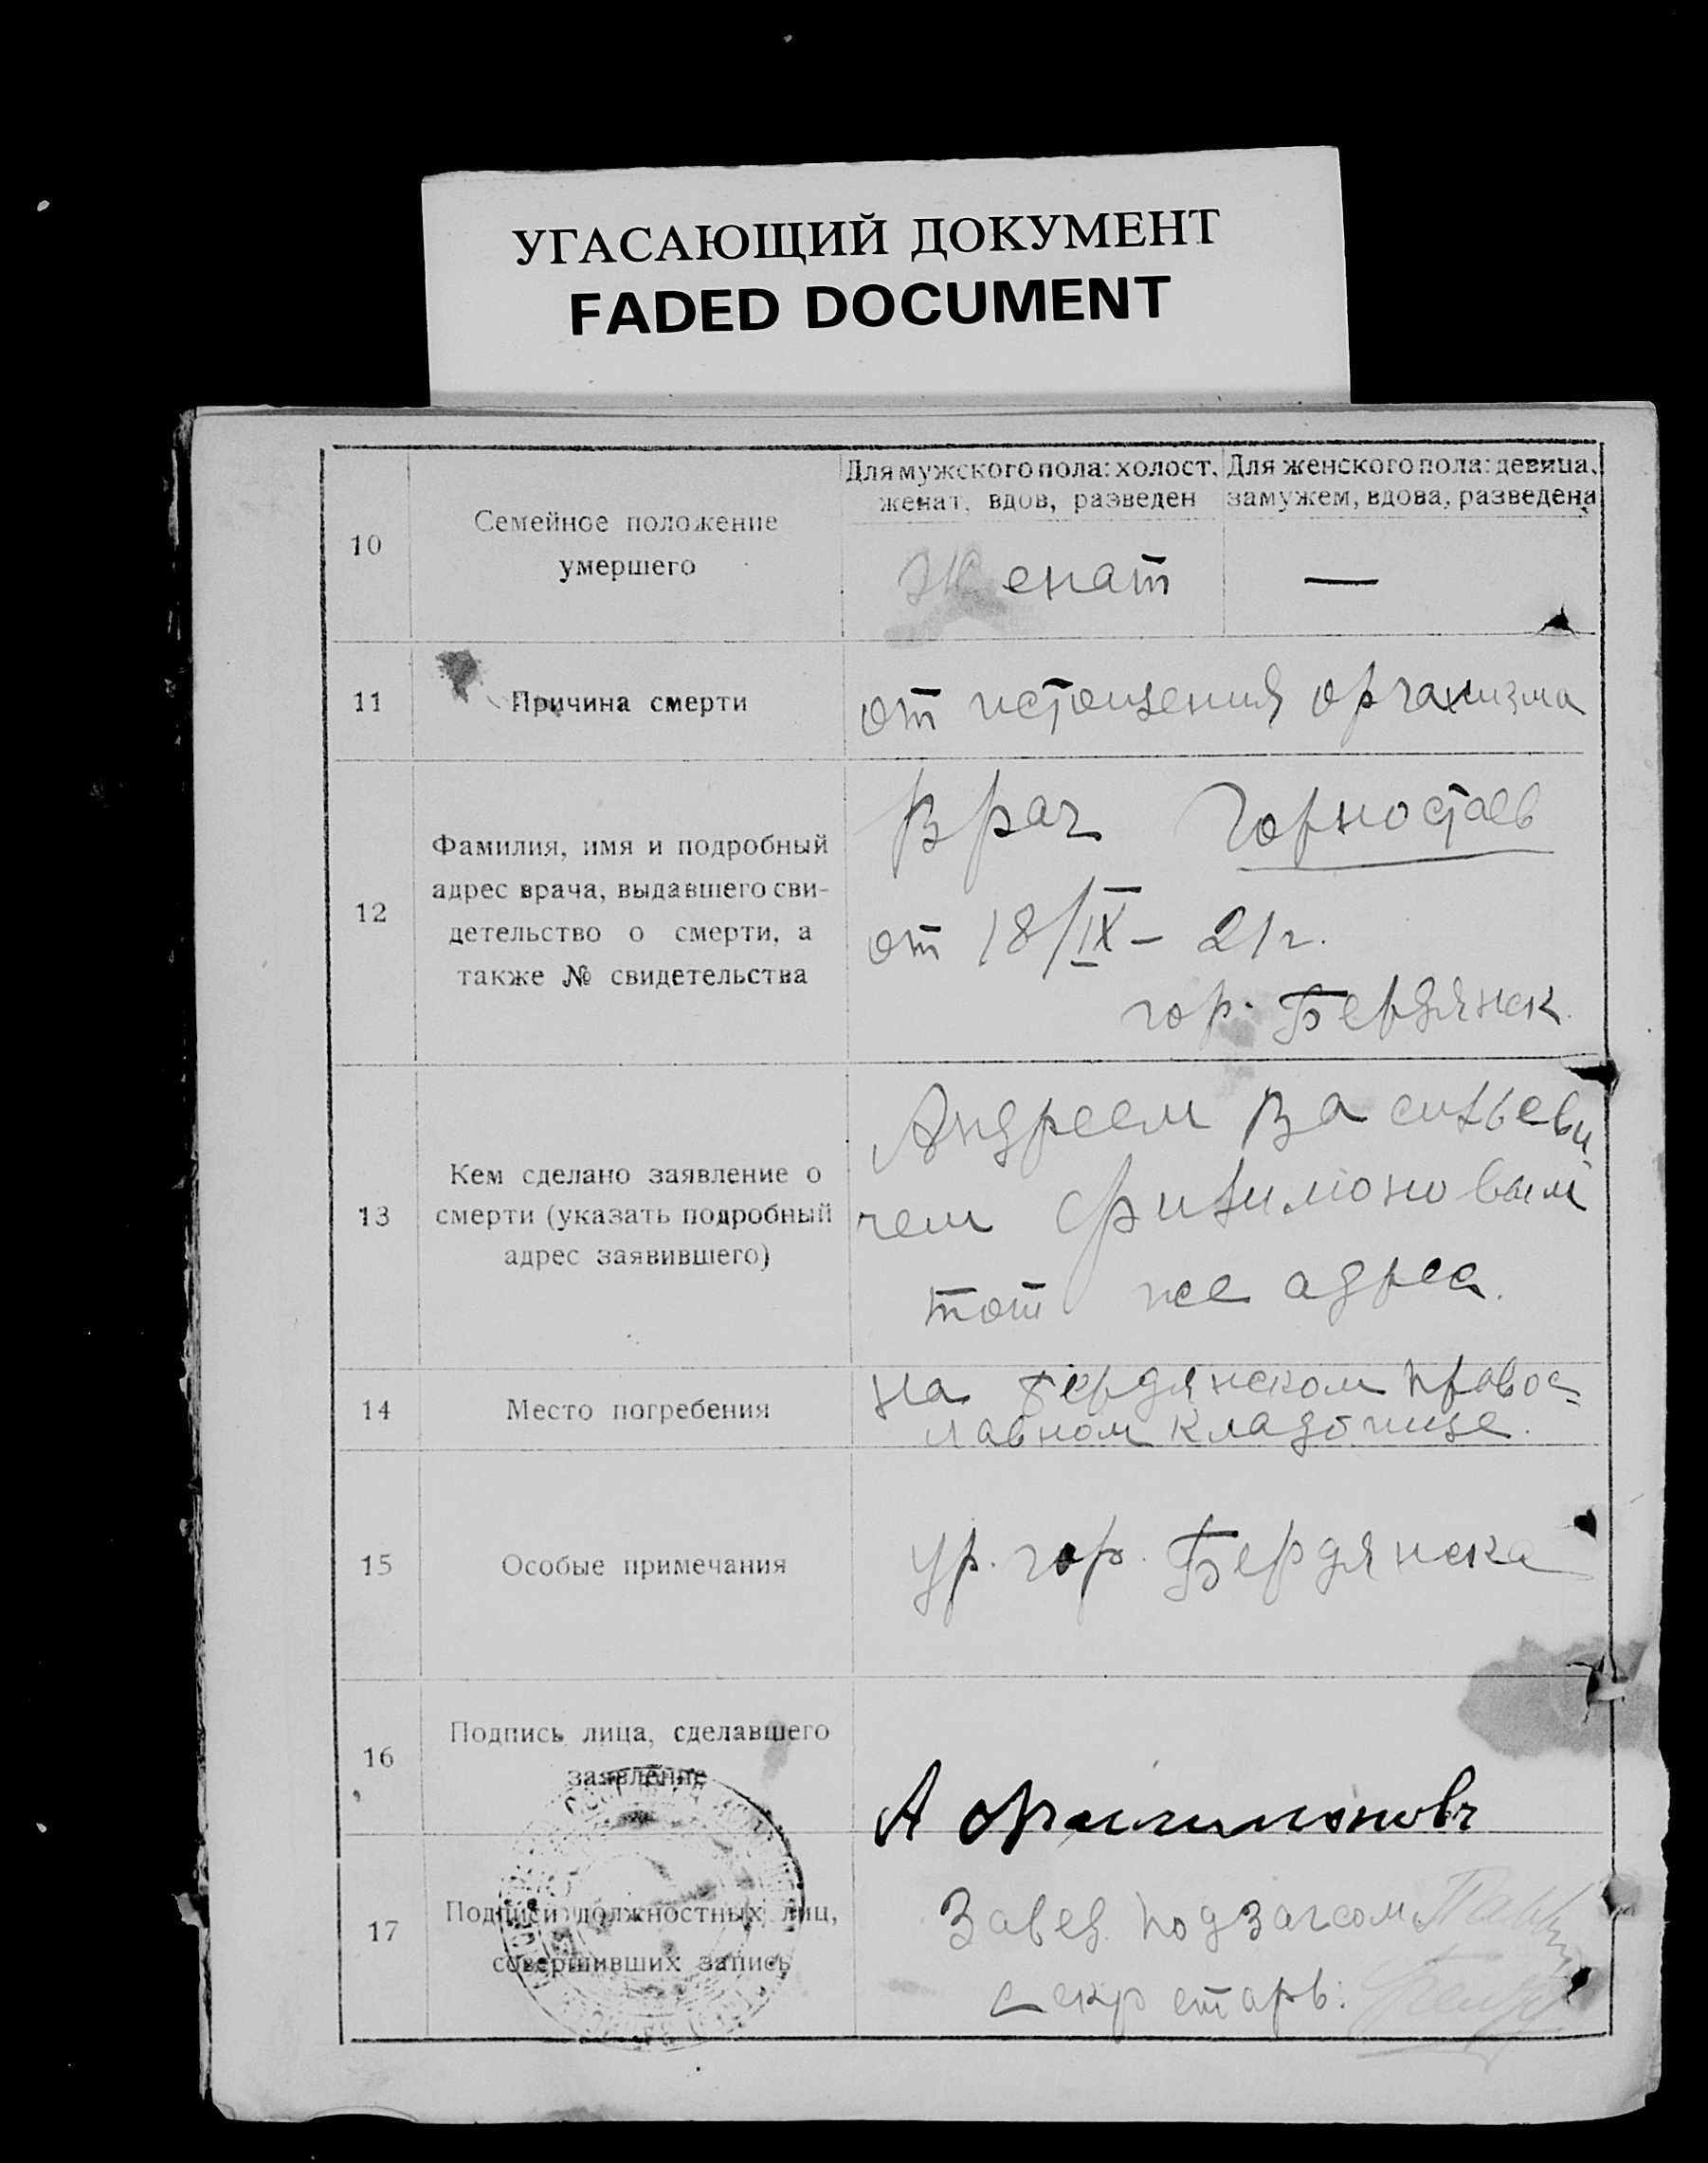 УГАСАЮЩИЙ ДОКУМЕНТ
FADED DOCUMENT
10
Семейное положение
умершего
Для мужского пола: холост,
женат, вдов, разведен
Для женского пола: девица,
замужем, вдова, разведена
Женат
—
11
Причина смерти
от истощения организма
12
Фамилия, имя и подробный
адрес врача, выдавшего сви-
детельство о смерти, а
также № свидетельства
Врач Горностаев
от 18/IX – 21 г.
гор. Бердянск
13
Кем сделано заявление о
смерти (указать подробный
адрес заявившего)
Андреем Васильеви
чем Филимоновым
тот же адрес.
14
Место погребения
на бердянском правос=
лавном кладбище.
15
Особые примечания
ур. гор. Бердянска
16
Подпись лица, сделавшего
заявление
А Филимоновъ
17
Подписи должностных лиц,
совершивших запись
Завед. подзагсом
секретарь: